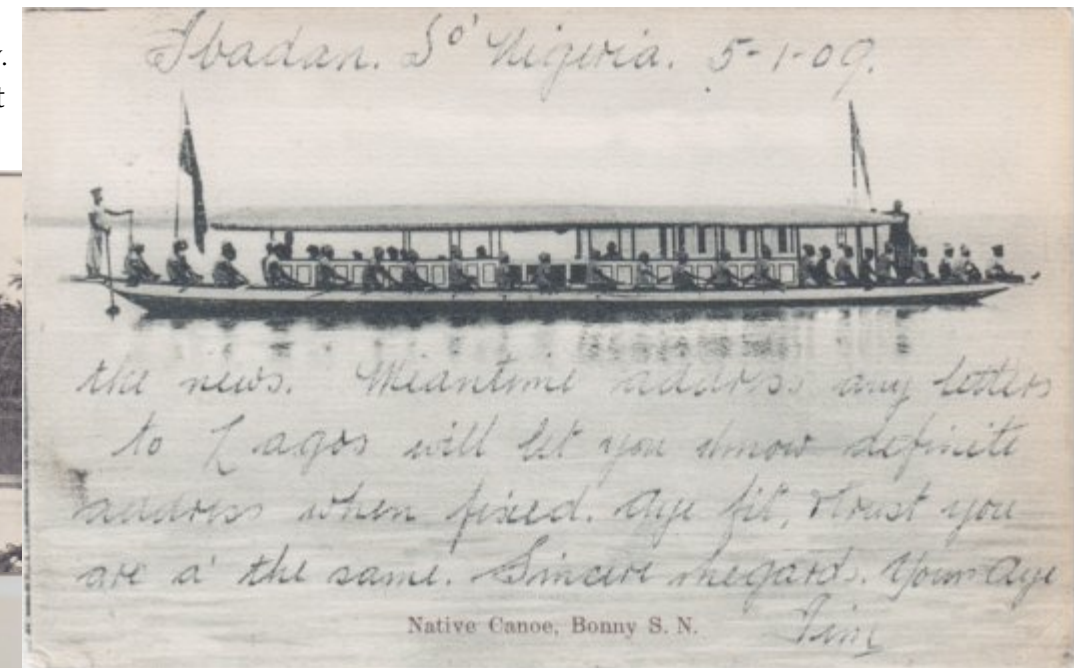 Ibadan. So' Nigeria. 5-1-09.
the news. Meantime address any letters
to Lagos will let you know definite
address when fixed. Aye fit, trust you
are a' the same. Sincere regards. Your Aye
Jim
Native Canoe, Bonny S. N.